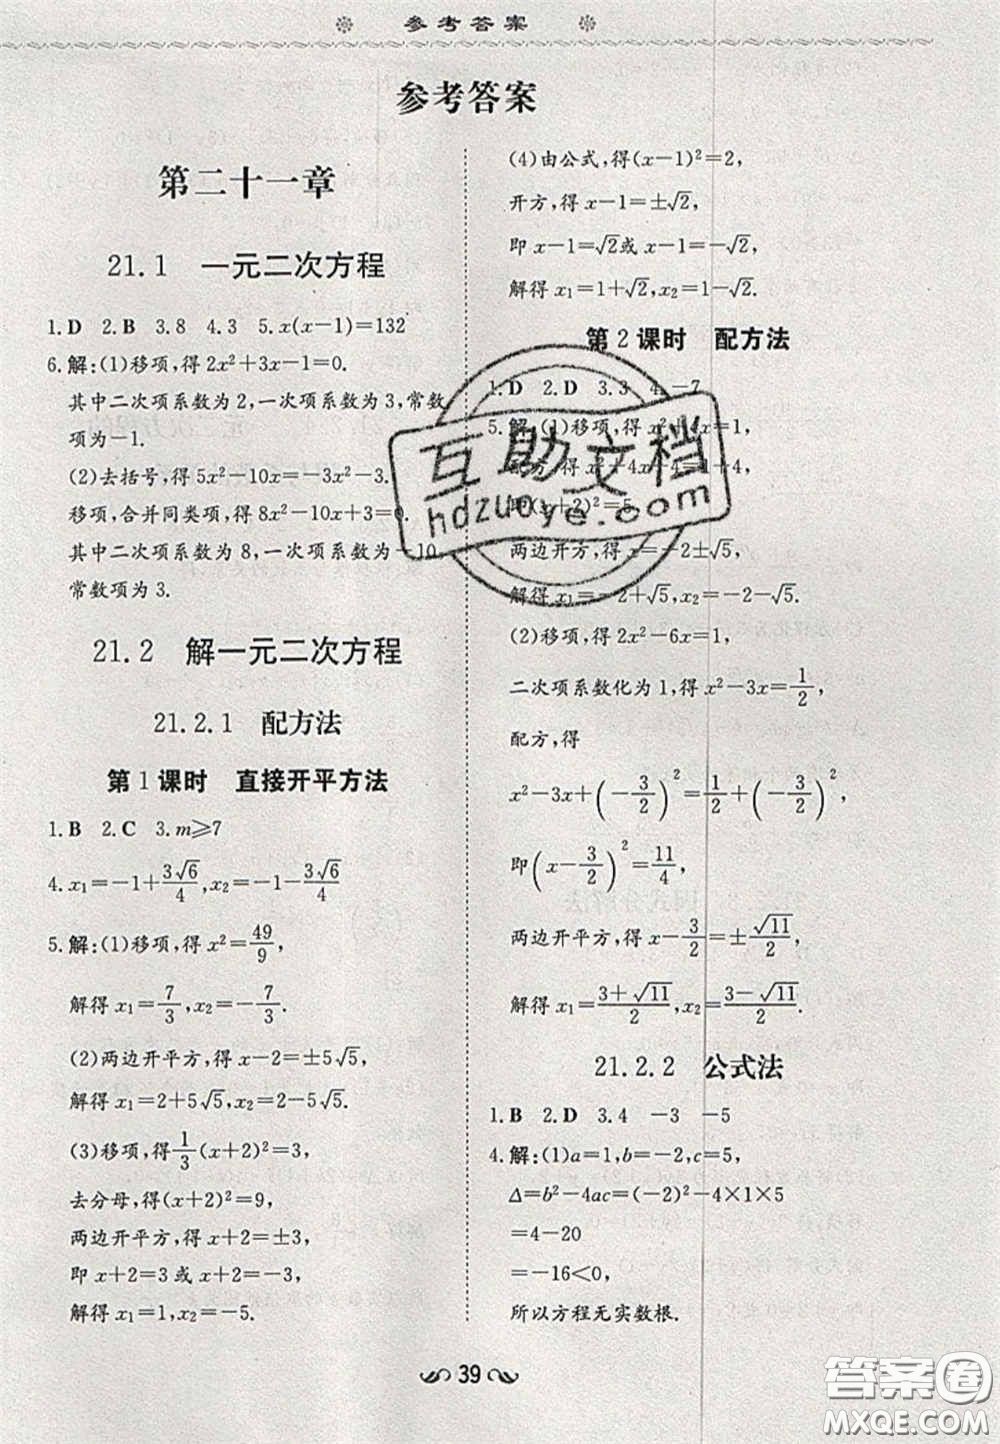 参考答案
参考答案
第二十一章
21.1 一元二次方程
1.D 2.B 3.8 4.3 5.x(x-1)=132
6.解:(1)移项,得2x²+3x-1=0.
其中二次项系数为2,一次项系数为3,常数
项为-1.
(2)去括号,得5x²-10x=-3x²-3.
移项,合并同类项,得8x²-10x+3=0.
其中二次项系数为8,一次项系数为-10,
常数项为3.
21.2 解一元二次方程
21.2.1 配方法
第1课时 直接开平方法
1.B 2.C 3.m≥7
4.x₁=-1+3√6/4,x₂=-1-3√6/4
5.解:(1)移项,得x²=49/9,
解得x₁=7/3,x₂=-7/3.
(2)两边开平方,得x-2=±5√5,
解得x₁=2+5√5,x₂=2-5√5.
(3)移项,得1/3(x+2)²=3,
去分母,得(x+2)²=9,
两边开平方,得x+2=±3,
即x+2=3或x+2=-3,
解得x₁=1,x₂=-5.
(4)由公式,得(x-1)²=2,
开方,得x-1=±√2,
即x-1=√2或x-1=-√2,
解得x₁=1+√2,x₂=1-√2.
第2课时 配方法
1.D 2.D 3.3 4.-7
5.解:(1)移项,得x²+4x=1,
配方,得x²+4x+4=1+4,
即(x+2)²=5,
两边开方,得x=-2±√5,
解得x₁=-2+√5,x₂=-2-√5.
(2)移项,得2x²-6x=1,
二次项系数化为1,得x²-3x=1/2,
配方,得
x²-3x+(-3/2)²=1/2+(-3/2)²,
即(x-3/2)²=11/4,
两边开平方,得x-3/2=±√11/2,
解得x₁=(3+√11)/2,x₂=(3-√11)/2.
21.2.2 公式法
1.B 2.D 3.4 -3 -5
4.解:(1)a=1,b=-2,c=5,
Δ=b²-4ac=(-2)²-4×1×5
=4-20
=-16<0,
所以方程无实数根.
39
互助文档
hdzuoye.com
答案圈
MXQE.COM